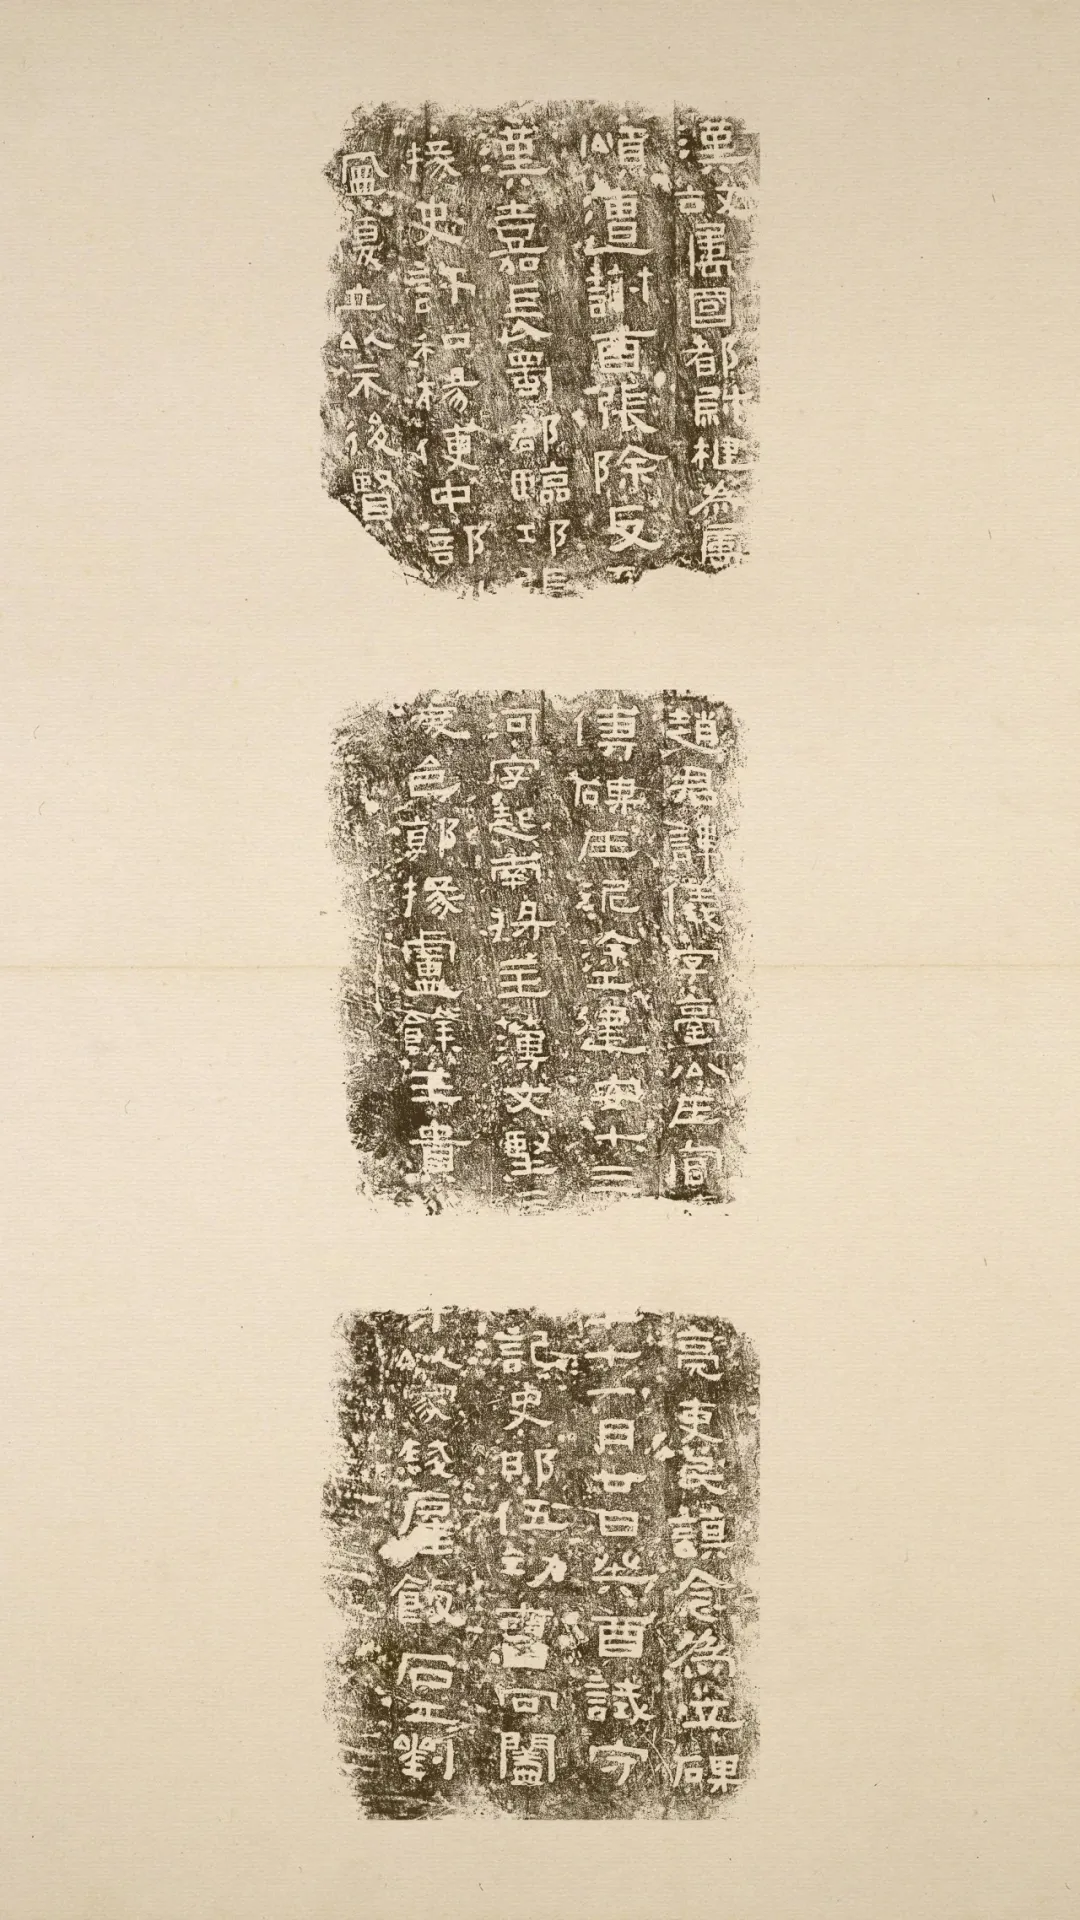 漢故屬國都尉楗為屬趙君諱儀字臺公在官亮吏民謨念為立碑
頌遭謝酉張除反傅碑在泥塗建安十三十一月廿日癸酉試守
漢嘉長蜀郡臨邛張河字起南將主簿文堅記史邯伍功曹闔
掾史許和楊便中部度邑郭掾盧餘王貴等以家錢雇飯石工劉
盛復立以示後賢